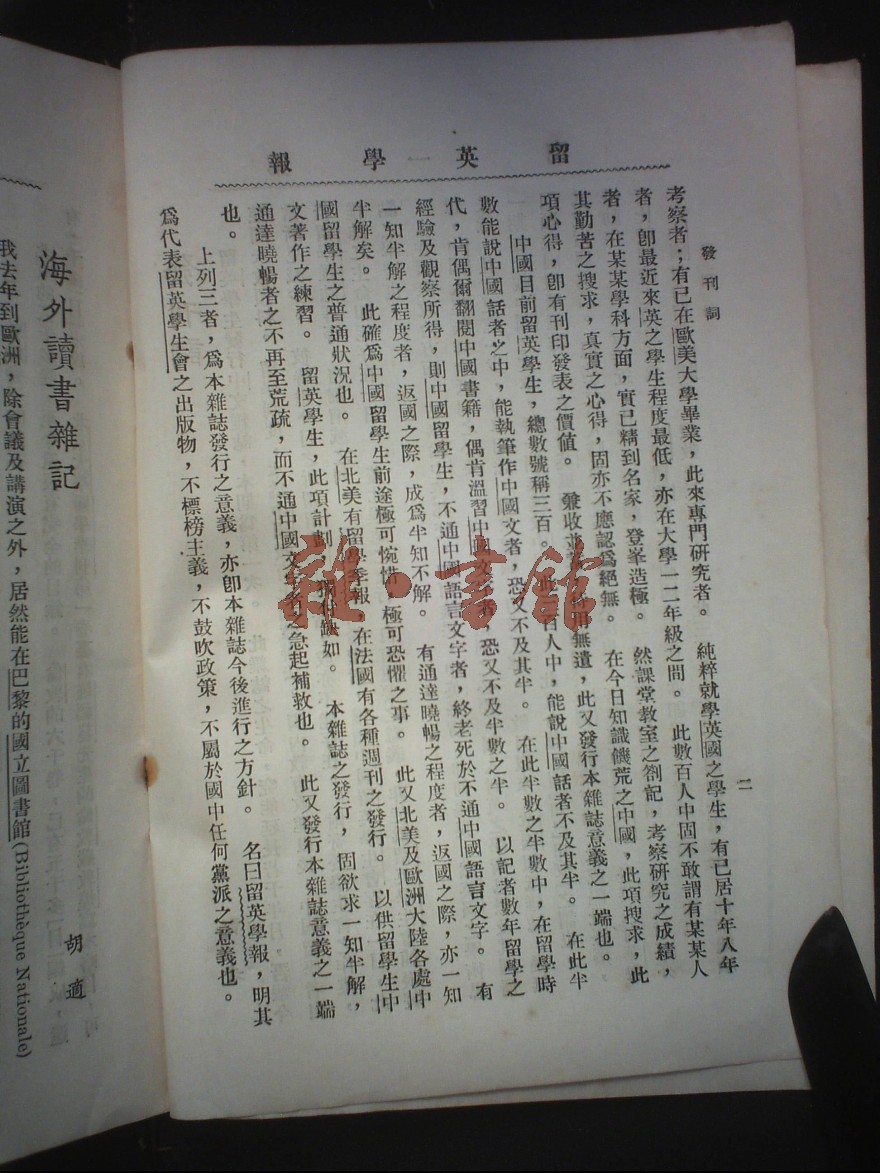 留英學報
發刊詞
二
考察者；有已在歐美大學畢業，此來專門研究者。　純粹就學英國之學生，有已居十年八年
者，卽最近來英之學生程度最低，亦在大學一二年級之間。　此數百人中固不敢謂有某某人
者，在某某學科方面，實已精到名家，登峯造極。　然課堂教室之劄記，考察研究之成績，
其勤苦之搜求，真實之心得，固亦不應認爲絕無。　在今日知識饑荒之中國，此項搜求，此
項心得，卽有刊印發表之價值。　兼收並　得用無遺，此又發行本雜誌意義之一端也。
中國目前留英學生，總數號稱三百。　此　百人中，能說中國話者不及其半。　在此半
數能說中國話者之中，能執筆作中國文者，恐又不及其半。　在此半數之半數中，在留學時
代，肯偶爾翻閱中國書籍，偶肯溫習中國文字者，恐又不及半數之半。　以記者數年留學之
經驗及觀察所得，則中國留學生，不通中國語言文字者，終老死於不通中國語言文字。　有
一知半解之程度者，返國之際，成爲半知不解。　有通達曉暢之程度者，返國之際，亦一知
半解矣。　此確爲中國留學生前途極可惋惜　極可恐懼之事。　此又北美及歐洲大陸各處中
國留學生之普通狀況也。　在北美有留學季報，在法國有各種週刊之發行。　以供留學生中
文著作之練習。　留英學生，此項計劃，　付缺如。　本雜誌之發行，固欲求一知半解，
通達曉暢者之不再至荒疏，而不通中國文　者之急起補救也。　此又發行本雜誌意義之一端
也。
上列三者，爲本雜誌發行之意義，亦卽本雜誌今後進行之方針。　名曰留英學報，明其
爲代表留英學生會之出版物，不標榜主義，不鼓吹政策，不屬於國中任何黨派之意義也。
雜·書館
海外讀書雜記
胡適
我去年到歐洲，除會議及講演之外，居然能在巴黎的國立圖書館(Bibliothèque Nationale)